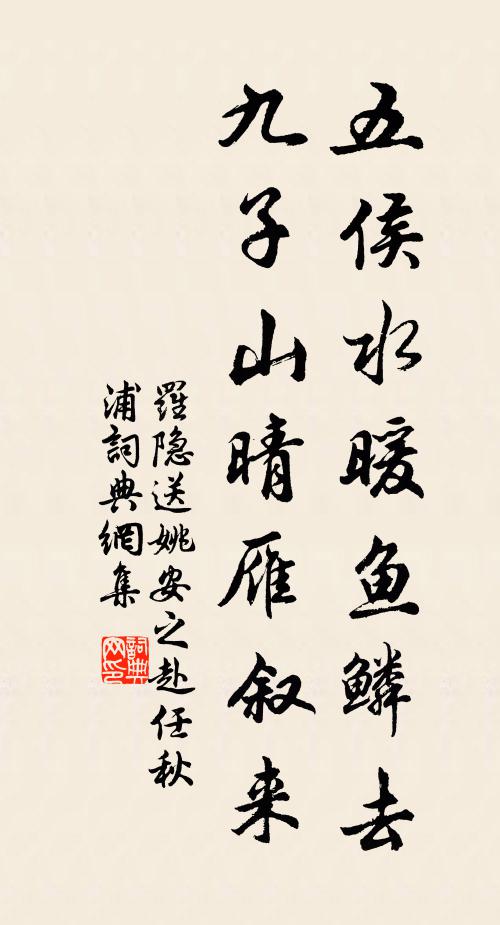 五侯水暖鱼鳞去
九子山晴雁叙来
羅隐送姚安之赴任秋
浦詞典網集
詞典
网印